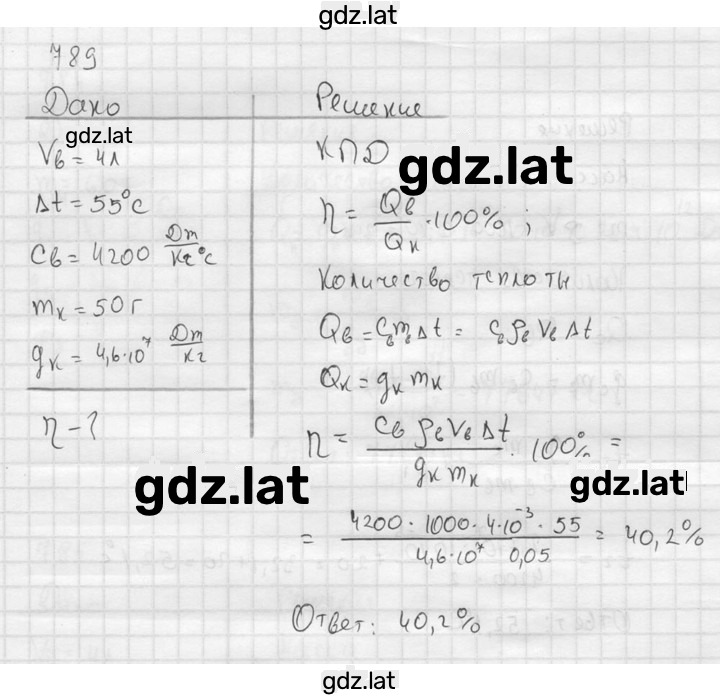 gdz.lat
789
Дано
gdz.lat
Vв = 4л
Δt = 55°C
Cв = 4200 Дж/кг°C
mк = 50 г
qк = 4,6·10⁷ Дж/кг
η - ?
Решение
КПД
gdz.lat
η = Qв/Qк · 100% ;
Количество теплоты
Qв = Cв mв Δt = Cв ρв Vв Δt
Qк = qк mк
η = Cв ρв Vв Δt / qк mк · 100% =
gdz.lat
gdz.lat
= 4200 · 1000 · 4·10⁻³ · 55 / 4,6·10⁷ 0,05 = 40,2%
Ответ: 40,2%
gdz.lat